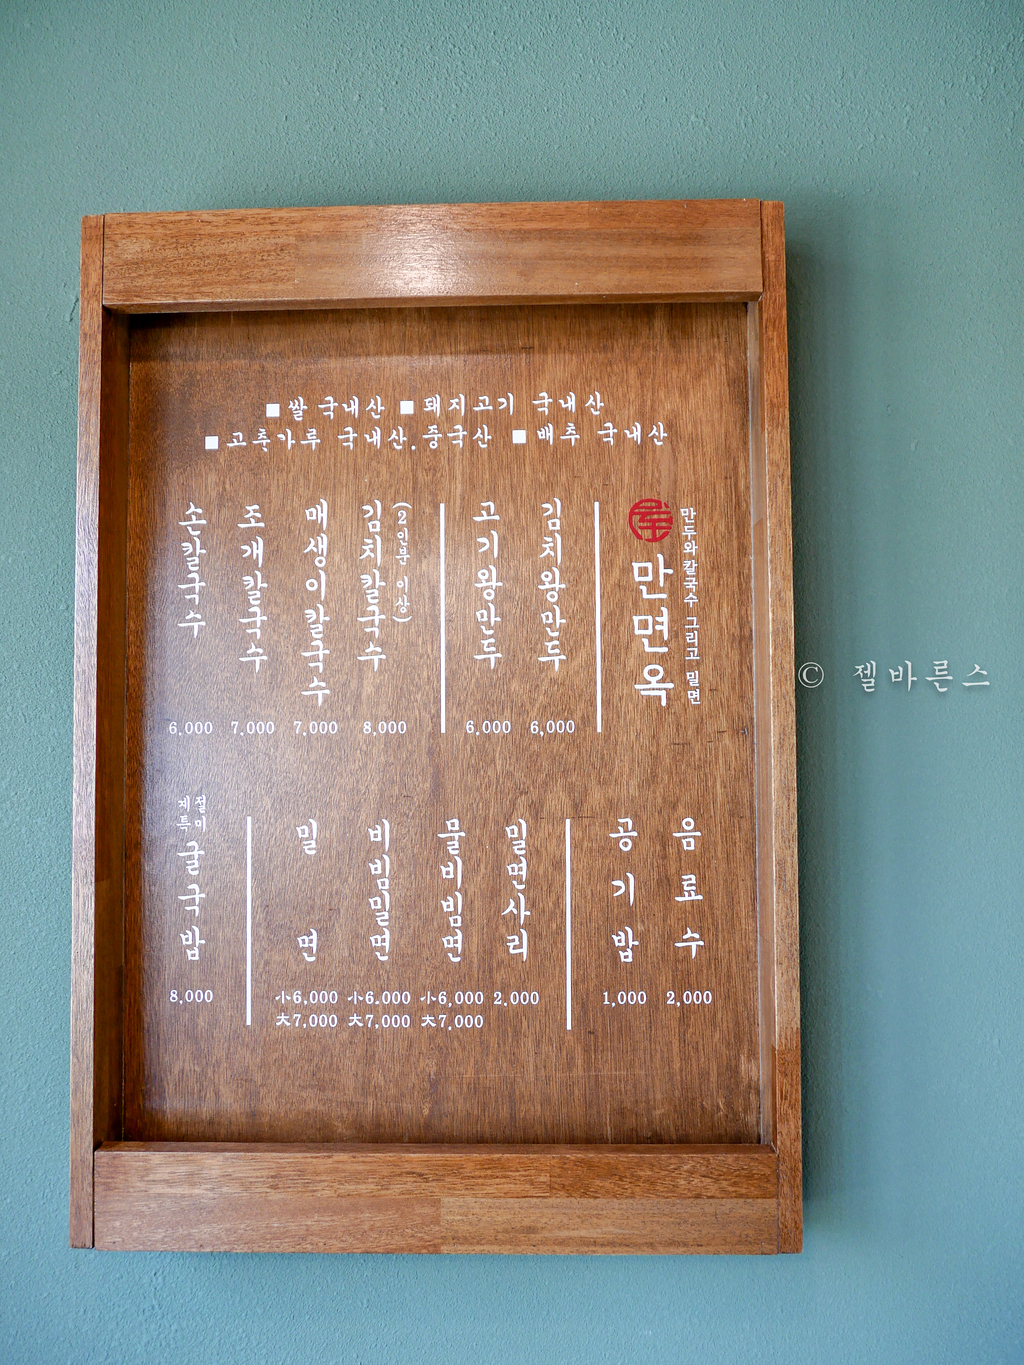 ■ 쌀 국내산 ■ 돼지고기 국내산
■ 고춧가루 국내산.중국산 ■ 배추 국내산
만두와 칼국수 그리고 밀면
만면옥
김치왕만두
6,000
고기왕만두
6,000
김치칼국수
(2인분 이상)
8,000
매생이칼국수
7,000
조개칼국수
7,000
손칼국수
6,000
음료수
2,000
공기밥
1,000
밀면사리
2,000
물비빔면
小6,000
大7,000
비빔밀면
小6,000
大7,000
밀면
小6,000
大7,000
절미
계특
굴국밥
8,000
© 젤바른스